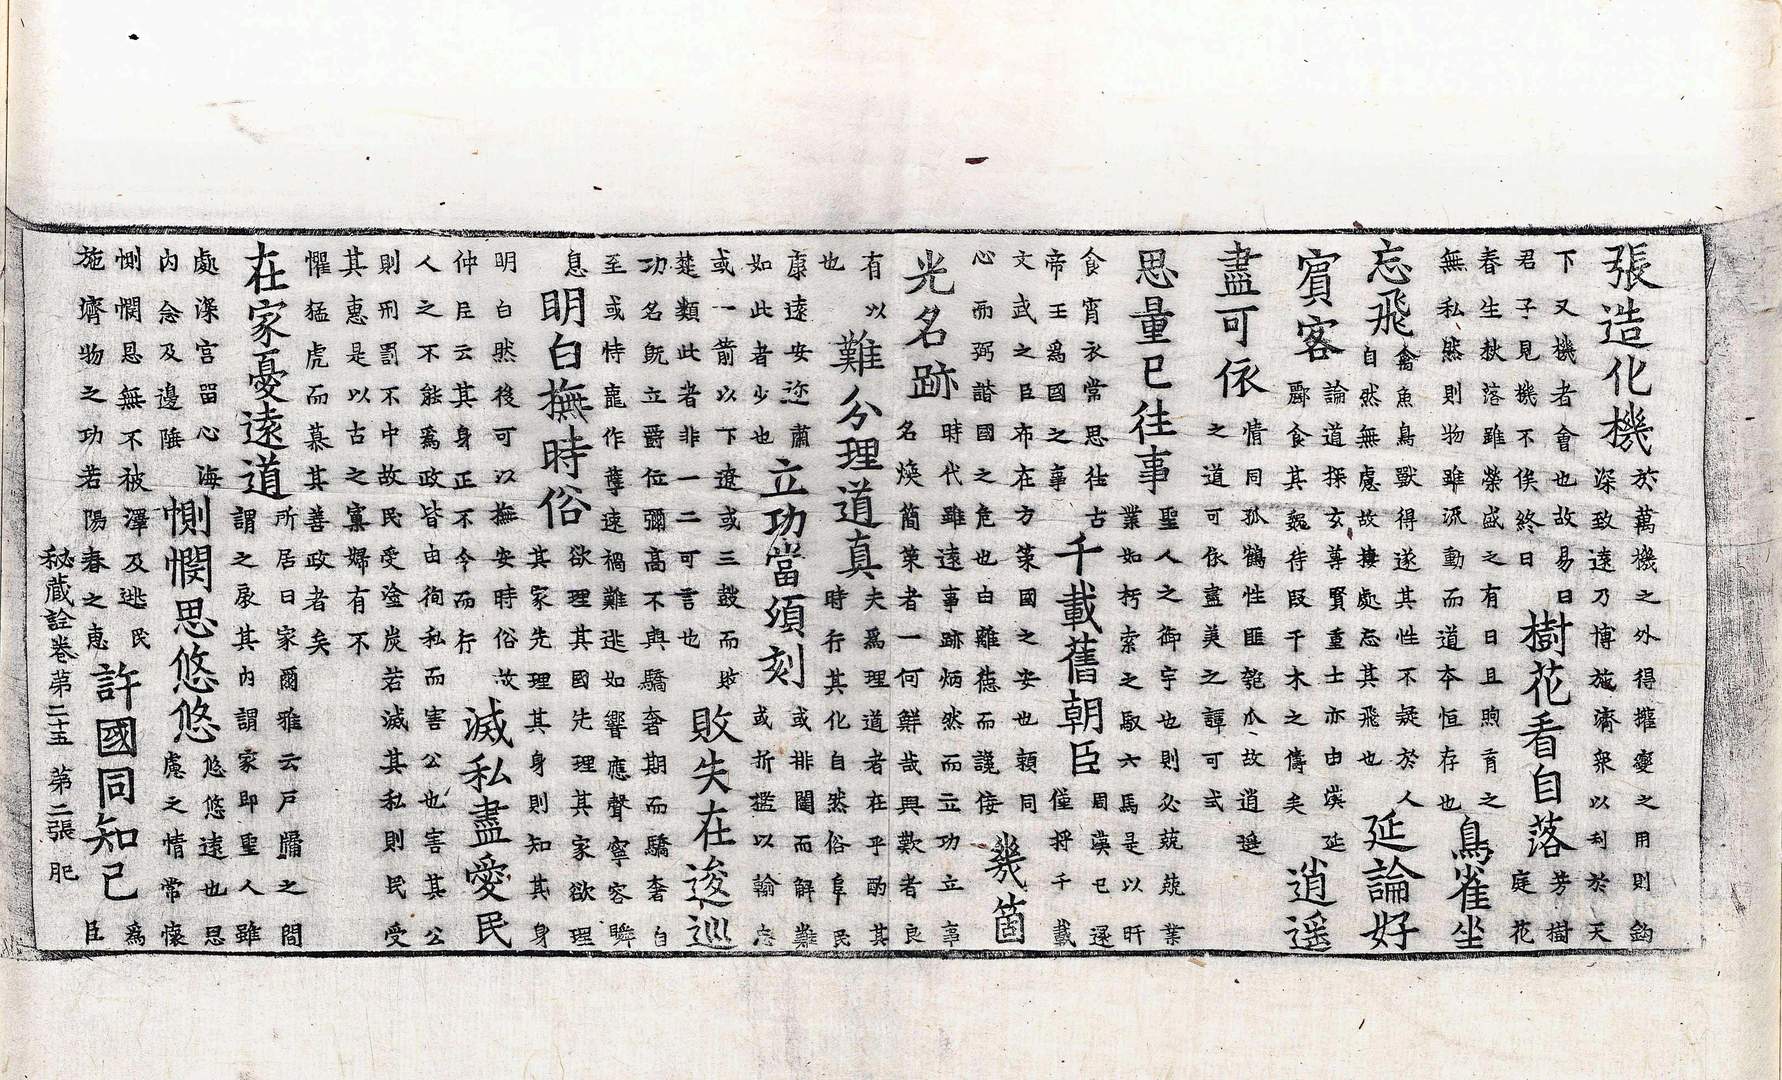 張造化機 於萬機之外得擢變之用則鈎
深致遠乃博施濟衆以利於天
下又機者會也故易曰
君子見機不俟終日 樹花看自落 芳樹
庭花
春生秋落雖榮盛之有日且煦育之
無私然則物雖流動而道本恒存也 鳥雀坐
忘飛 禽魚鳥獸得遂其性不疑於人
自然無慮故棲處忘其飛也 延論好
賓客 論道探玄尊賢重士亦由漢延
酈食其魏待段干木之儔矣 逍遥
盡可依 情同孤鶴性匪匏瓜故逍遥
之道可依盡美之譚可弌
思量已往事 聖人之御宇也則必兢兢業
業如朽索之馭六馬是以旰
食宵衣常思往古
帝王爲國之事 千載舊朝臣 周漢已還
僅將千載
文武之臣布在方策國之安也賴同
心而弼諧國之危也白離德而讒佞 幾箇
光名跡 時代雖遠事跡炳然而立功立事
名煥簡策者一何鮮哉興歎者良
有以
也 難分理道真 夫爲理道者在乎酌其
時行其化自然俗阜民
康遠安迩肅
如此者少也 立功當須刻 或排闥而解難
或折檻以輸忠
或一箭以下遼或三鼓而敗
楚類此者非一二可言也 敗失在逡巡
功名既立爵位彌高不與驕奢期而驕奢自
至或恃寵作孽速禍難逃如響應聲寧容瞬
息 明白撫時俗 欲理其國先理其家欲理
其家先理其身則知其身
明白然後可以撫安時俗故
仲尼云其身正不令而行 滅私盡愛民
人之不能爲政皆由徇私而害公也害其公
則刑罰不中故民受塗炭若滅其私則民受
其惠是以古之寡婦有不
懼猛虎而慕其善政者矣
在家憂遠道 所居曰家爾雅云戶牖之間
謂之扆其内謂家即聖人雖
處深宮留心海
内念及邊陲 惻憫思悠悠 悠悠遠也思
慮之情常懷
惻憫恩無不被澤及逃民
施濟物之功若陽春之惠 許國同知己 爲
臣
秘藏詮卷第二十五 第二張 肥